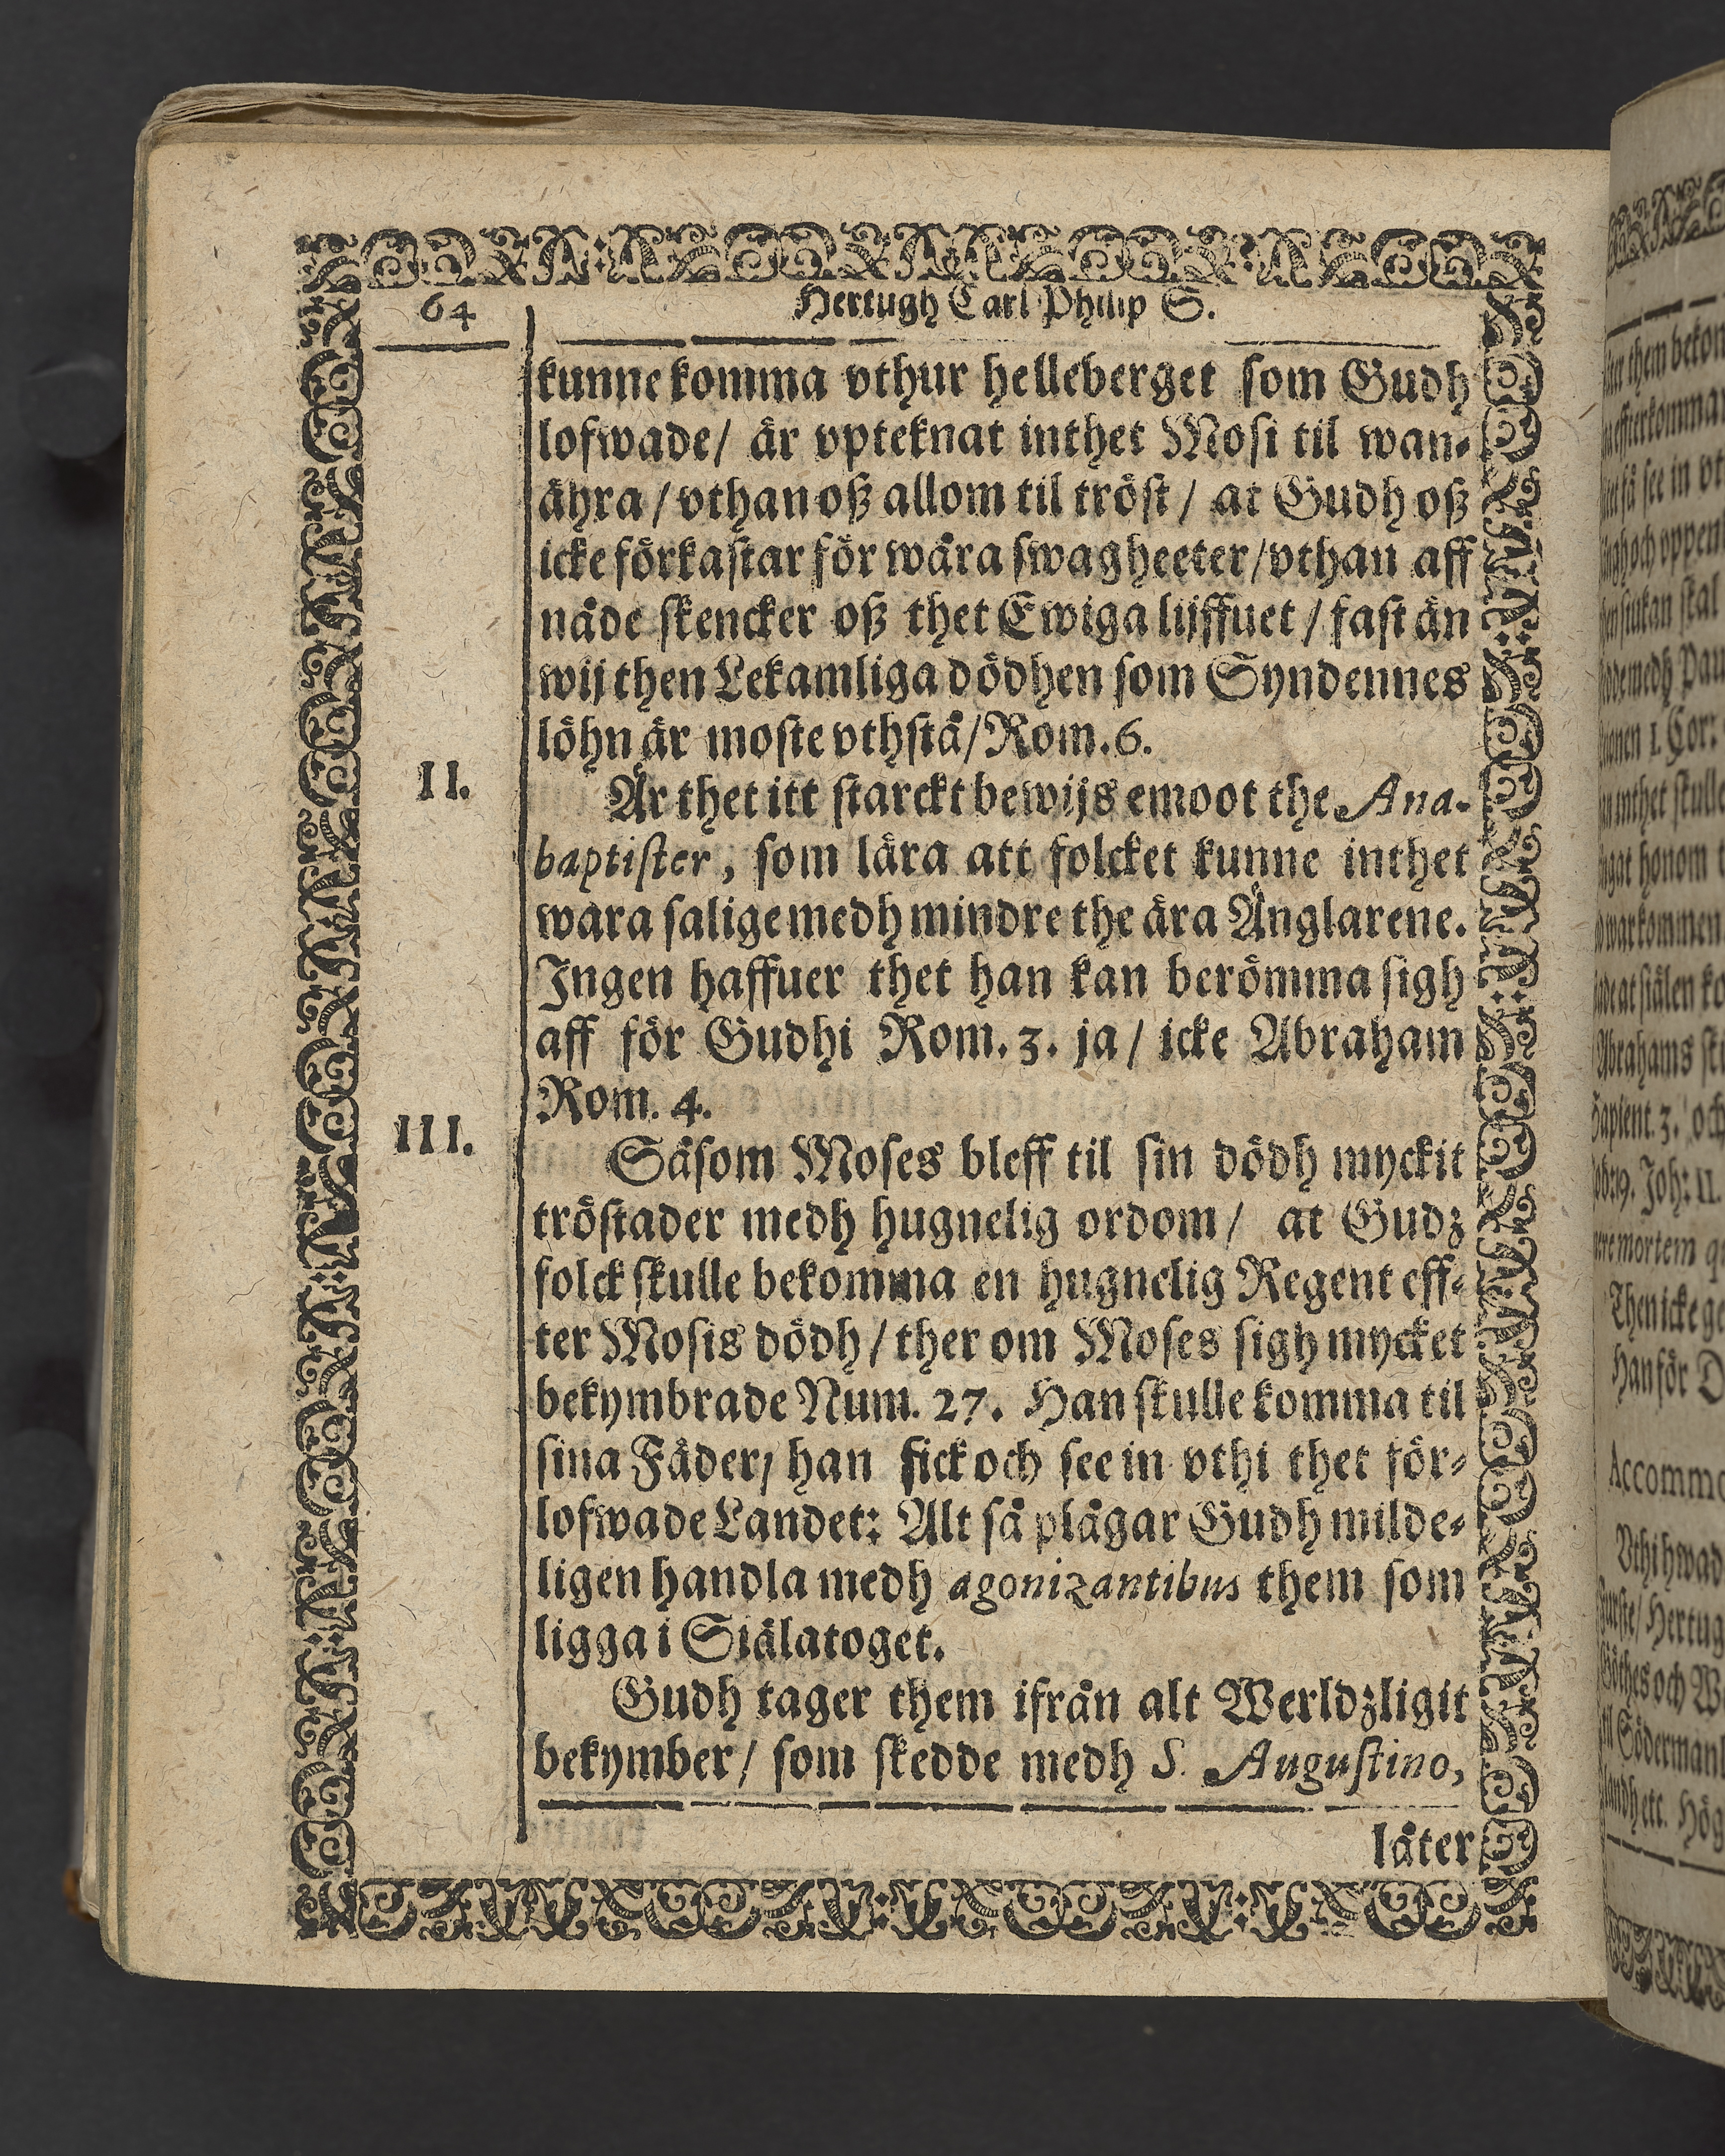 64
Hertugh Carl Philip S.
kunne komma vthur helleberget som Gudh
lofwade/ är vpteknat inthet Mosi til wan-
ähra/ vthan oß allom til tröst/ at Gudh oß
icke förkastar för wåra swagheeter/ vthan aff
nåde skencker oß thet Ewiga lijffuet/ fast än
wij then Lekamliga dödhen som Syndennes
löhn är moste vthstå/ Rom. 6.
II.
Är thet itt starckt bewijs emoot the Ana-
baptister, som lära att folcket kunne inthet
wara salige medh mindre the ära Änglarene.
Ingen haffuer thet han kan berömma sigh
aff för Gudhi Rom. 3. ja/ icke Abraham
Rom. 4.
III.
Såsom Moses bleff til sin dödh myckit
tröstader medh hugnelig ordom/ at Gudz
folck skulle bekomma en hugnelig Regent eff-
ter Mosis dödh/ ther om Moses sigh mycket
bekymbrade Num. 27. Han skulle komma til
sina Fäder/ han fick och see in vthi thet för-
lofwade Landet: Alt så plägar Gudh milde-
ligen handla medh agonizantibus them som
ligga i Siälatoget.
Gudh tager them ifrån alt Werldzligit
bekymber/ som skedde medh S. Augustino,
låter